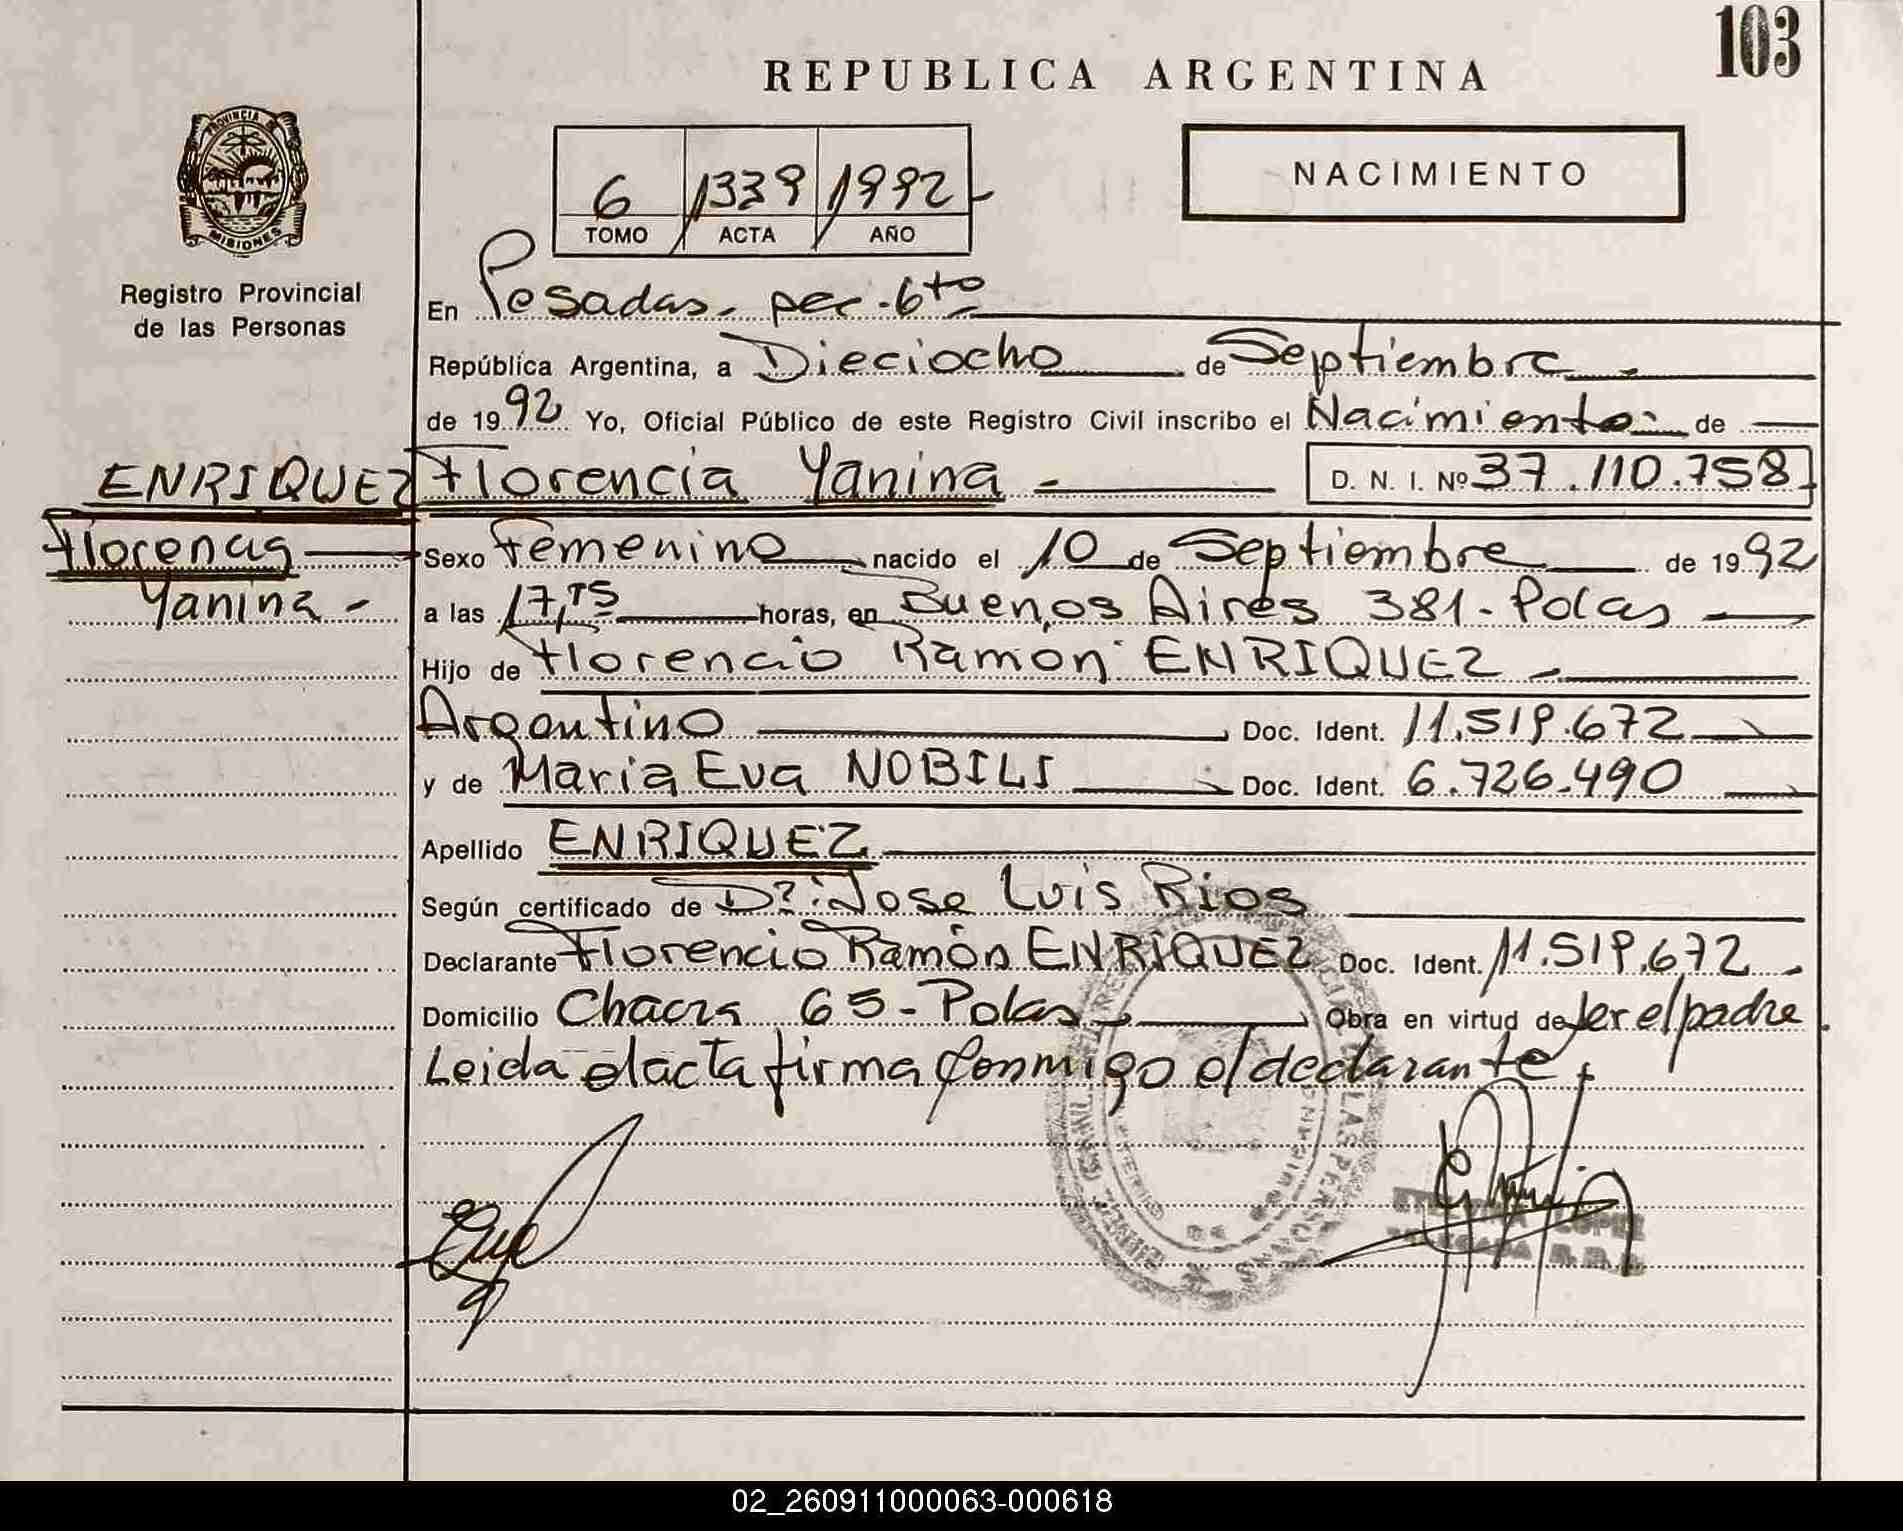 103
REPUBLICA ARGENTINA
PROVINCIA DE
MISIONES
Registro Provincial
de las Personas
6 1339 1992
TOMO ACTA AÑO
NACIMIENTO
En Posadas, sec. 6to
República Argentina, a Dieciocho de Septiembre
de 1992 Yo, Oficial Público de este Registro Civil inscribo el Nacimiento de
ENRIQUEZ
Florencia
Yanina -
Florencia Yanina - D. N. I. Nº 37.110.758
Sexo Femenino nacido el 10 de Septiembre de 1992
a las 17,15 horas, en Buenos Aires 381 - Pdas
Hijo de Florencio Ramon ENRIQUEZ -
Argentino Doc. Ident. 11.519.672
y de Maria Eva NOBILI Doc. Ident. 6.726.490
Apellido ENRIQUEZ
Según certificado de Dr: Jose Luis Rios
Declarante Florencio Ramón ENRIQUEZ Doc. Ident. 11.519.672
Domicilio Chacra 65 - Pdas Obra en virtud de ser el padre
Leida el acta firma conmigo el declarante
LOPEZ
DELEGADA R.P.P.
02_260911000063-000618